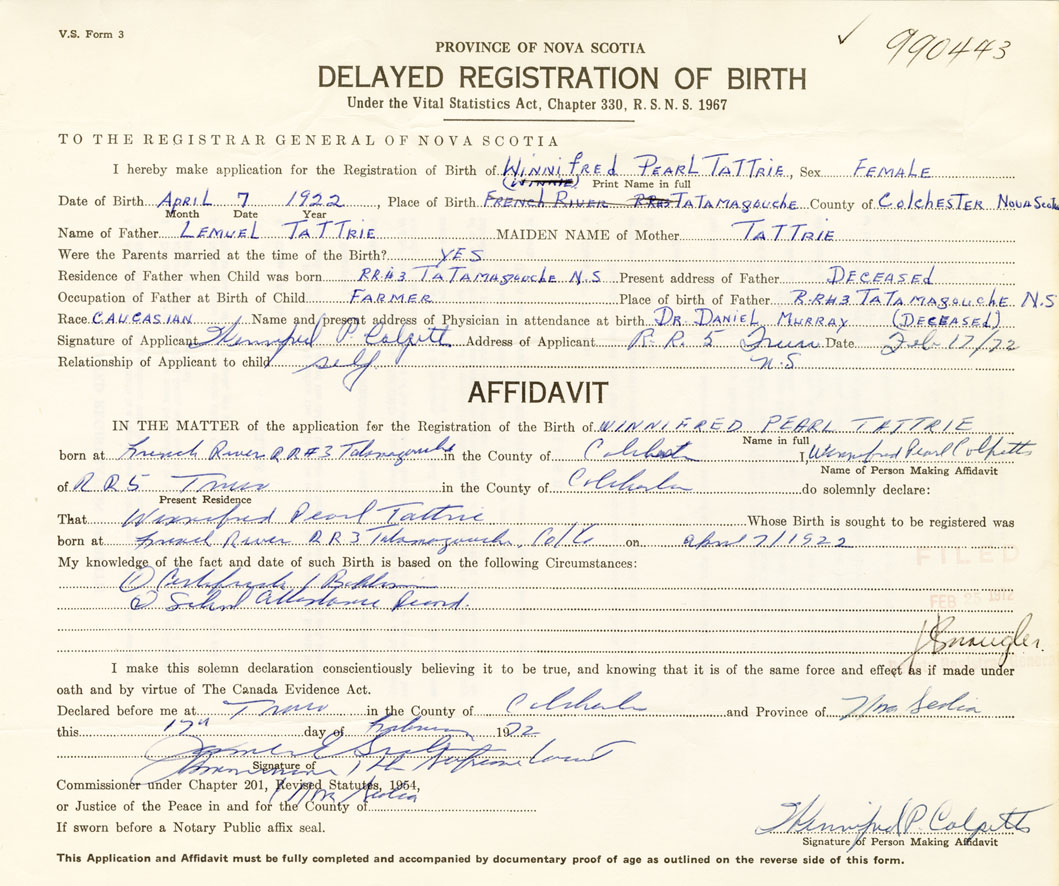 V.S. Form 3
✓ 990443
PROVINCE OF NOVA SCOTIA
DELAYED REGISTRATION OF BIRTH
Under the Vital Statistics Act, Chapter 330, R. S. N. S. 1967
TO THE REGISTRAR GENERAL OF NOVA SCOTIA
I hereby make application for the Registration of Birth of WINNIFRED PEARL TATTRIE, Sex FEMALE
(WINNIE) Print Name in full
Date of Birth APRIL 7 1922, Place of Birth FRENCH RIVER RR#3 TATAMAGOUCHE County of COLCHESTER NOVA SCOTIA
Month Date Year
Name of Father LEMUEL TATTRIE MAIDEN NAME of Mother TATTRIE
Were the Parents married at the time of the Birth? YES
Residence of Father when Child was born RR#3 TATAMAGOUCHE N.S Present address of Father DECEASED
Occupation of Father at Birth of Child FARMER Place of birth of Father R.R#3 TATAMAGOUCHE N.S
Race CAUCASIAN Name and present address of Physician in attendance at birth DR. DANIEL MURRAY (DECEASED)
Signature of Applicant Winnifred P. Colpitts Address of Applicant R. R. 5 Truro Date Feb 17/72
Relationship of Applicant to child self N.S
AFFIDAVIT
IN THE MATTER of the application for the Registration of the Birth of WINNIFRED PEARL TATTRIE
Name in full
born at French River RR#3 Tatamagouche in the County of Colchester I, Winnifred Pearl Colpitts
Name of Person Making Affidavit
of R R 5 Truro in the County of Colchester do solemnly declare:
Present Residence
That Winnifred Pearl Tattrie Whose Birth is sought to be registered was
born at French River RR 3 Tatamagouche, Col Co on April 7/1922
My knowledge of the fact and date of such Birth is based on the following Circumstances:
① Certificate of Baptism
② School Attendance Record.
FILED
FEB 25 1972
I make this solemn declaration conscientiously believing it to be true, and knowing that it is of the same force and effect as if made under
oath and by virtue of The Canada Evidence Act.
Declared before me at Truro in the County of Colchester and Province of Nova Scotia
this 17th day of February 1972
Signature of
Commissioner under Chapter 201, Revised Statutes, 1954,
or Justice of the Peace in and for the County of Nova Scotia
If sworn before a Notary Public affix seal.
Winnifred P. Colpitts
Signature of Person Making Affidavit
This Application and Affidavit must be fully completed and accompanied by documentary proof of age as outlined on the reverse side of this form.